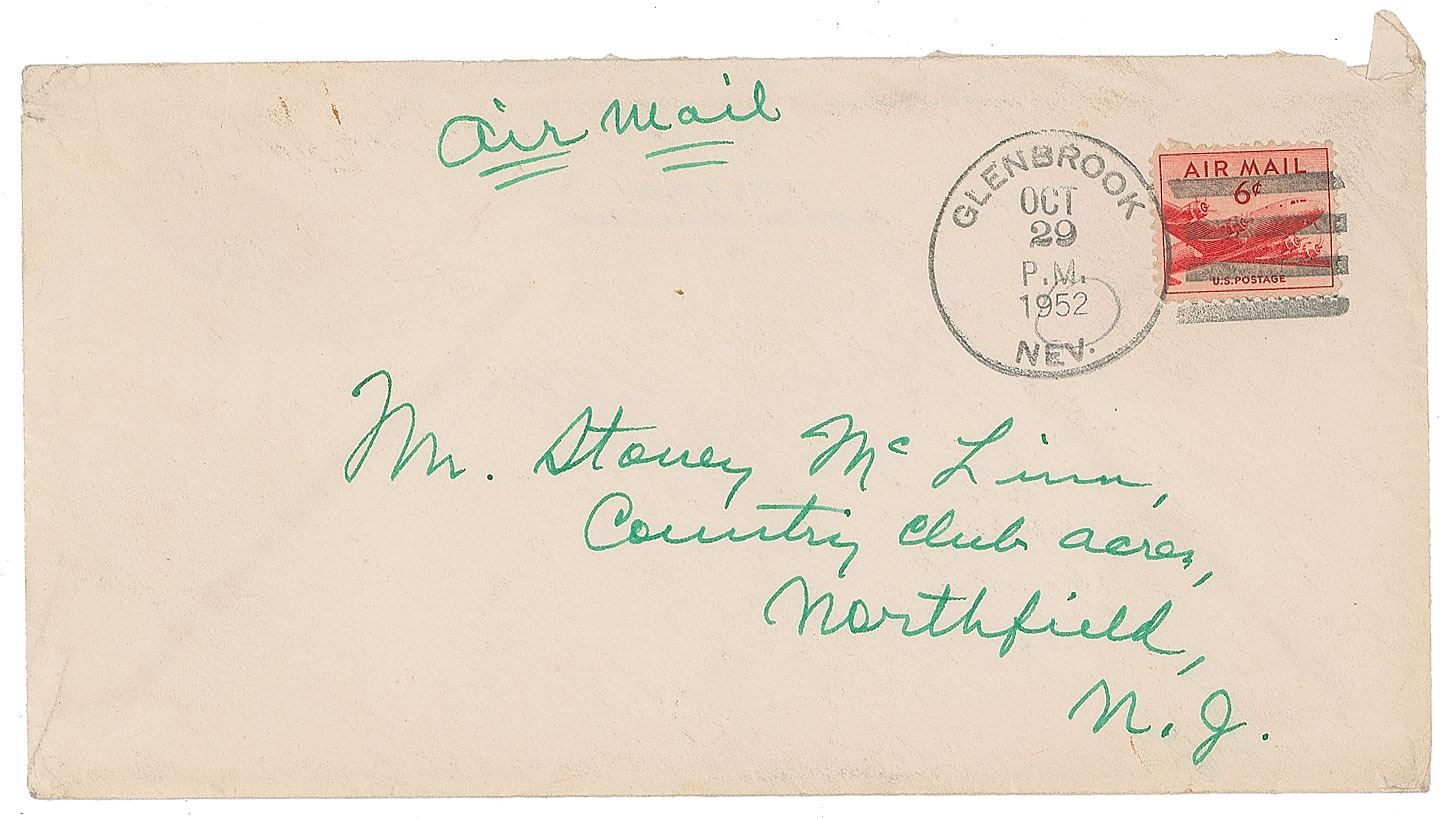 Air Mail
GLENBROOK
OCT
29
P.M.
1952
NEV.
AIR MAIL
6¢
U.S. POSTAGE
Mr. Stoney Mc Linn,
Country Club acres,
Northfield,
N. J.